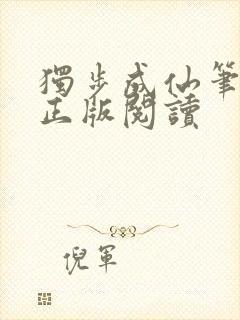 獨步成仙筆
正版閱讀
倪軍